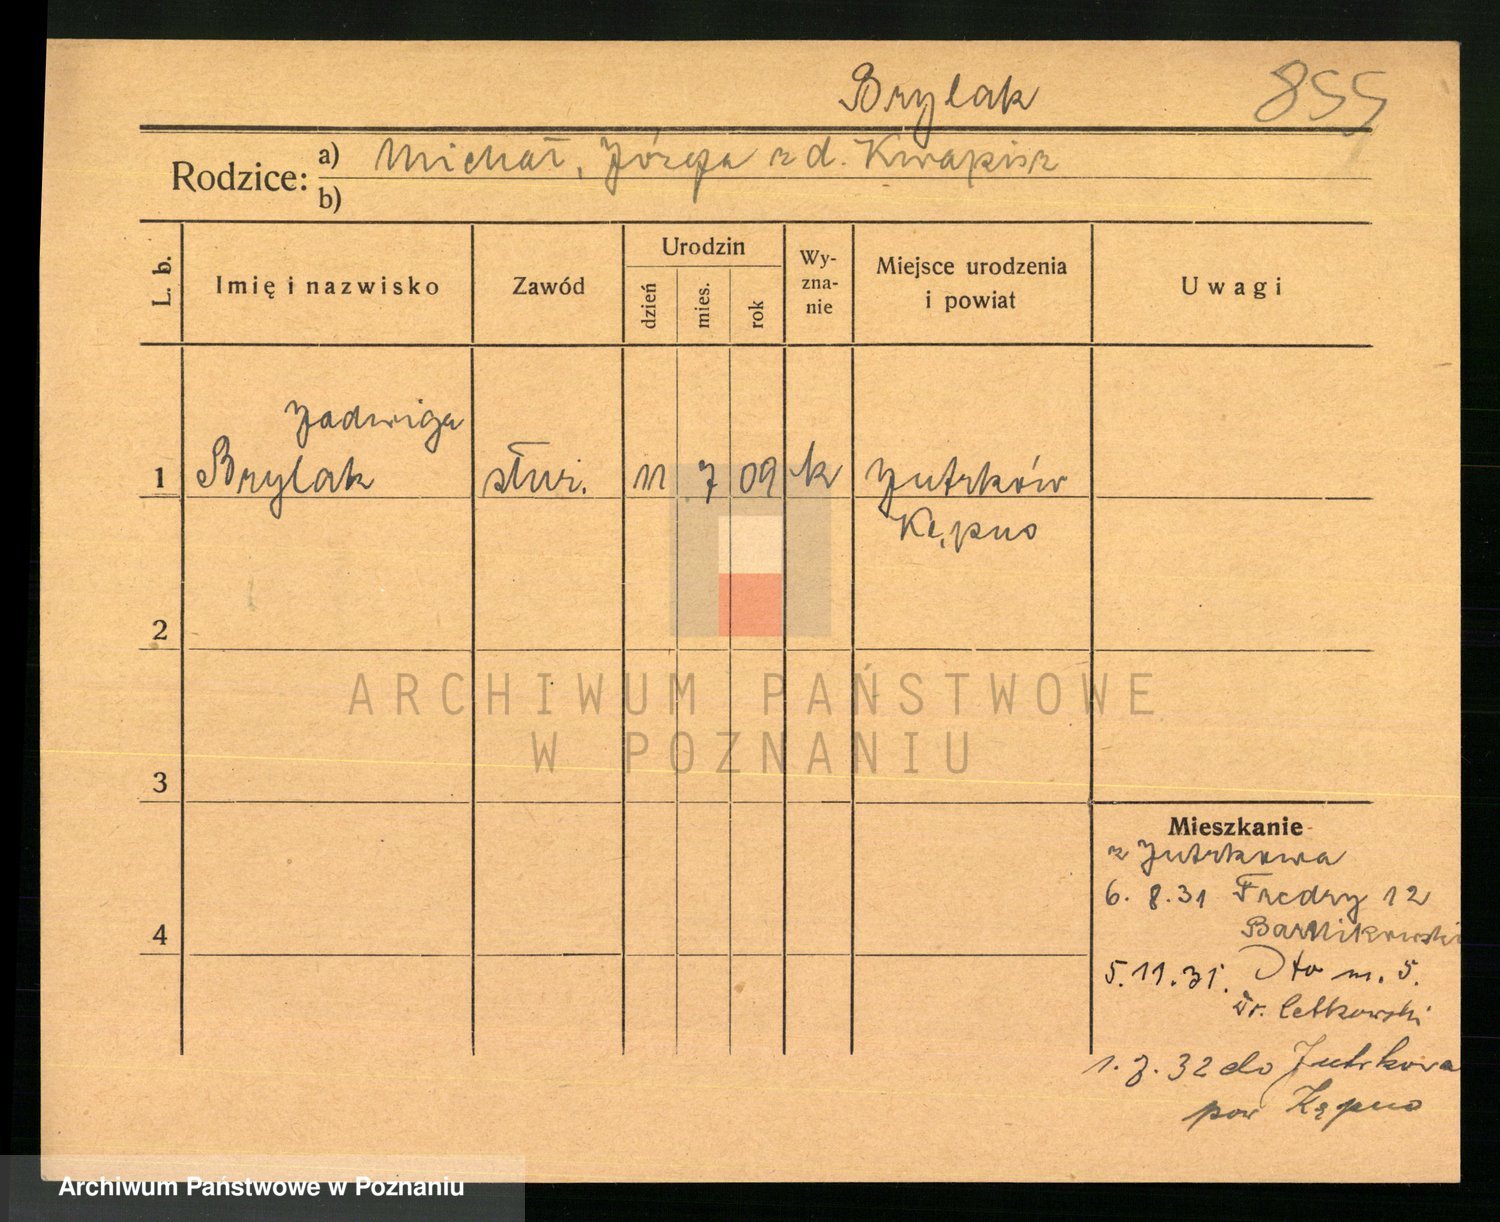 Brylak 855
Rodzice: a) Michał, Józefa z d. Kwapisz
b)
L. b. Imię i nazwisko Zawód Urodzin dzień mies. rok Wy-zna-nie Miejsce urodzenia i powiat Uwagi
Jadwiga
1 Brylak służ. 11 7 09 k Jutrków
Kępno
2
ARCHIWUM PAŃSTWOWE
W POZNANIU
3
Mieszkanie
z Jutrkowa
6. 8. 31 Fredry 12
4
5. 11. 31. Dto m. 5.
dr. Cetkowski
1. 7. 32 do Jutrkowa
pow Kępno
Archiwum Państwowe w Poznaniu